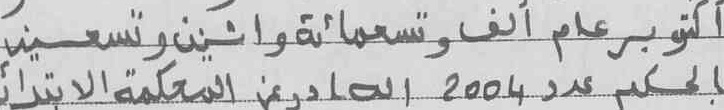 أكتوبر عام ألف وتسعمائة واثنين وتسعين
الحكم عدد 2004 الصادر عن المحكمة الابتدائ